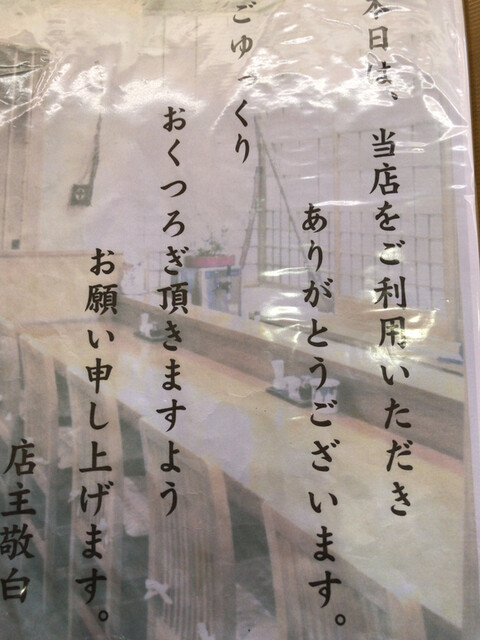 本日は、当店をご利用いただき
ありがとうございます。
ごゆっくり
おくつろぎ頂きますよう
お願い申し上げます。
店主敬白